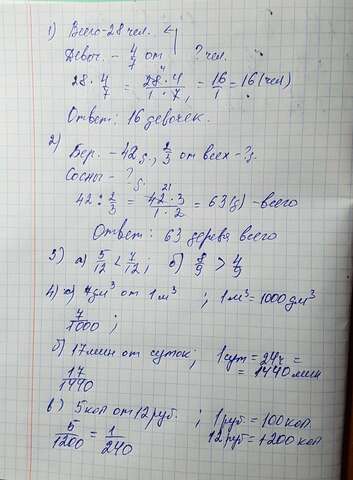 1) Всего - 28 чел.
Девоч. - 4/7 от ? чел.
28 · 4/7 = 28·4/1·7 = 16/1 = 16 (чел)
Ответ: 16 девочек.
2)
Бер. - 42 g, 2/3 от всех - ? g.
Сосны - ? g.
42 : 2/3 = 42·3/1·2 = 63 (g) - всего
Ответ: 63 дерева всего
3) а) 5/12 < 7/12 ; б) 8/9 > 4/9
4) а) 7 дм³ от 1 м³ ; 1 м³ = 1000 дм³
7/1000 ;
б) 17 мин от суток ; 1 сут = 24 ч =
17/1440 = 1440 мин
в) 5 коп от 12 руб. ; 1 руб = 100 коп.
5/1200 = 1/240 12 руб = 1200 коп